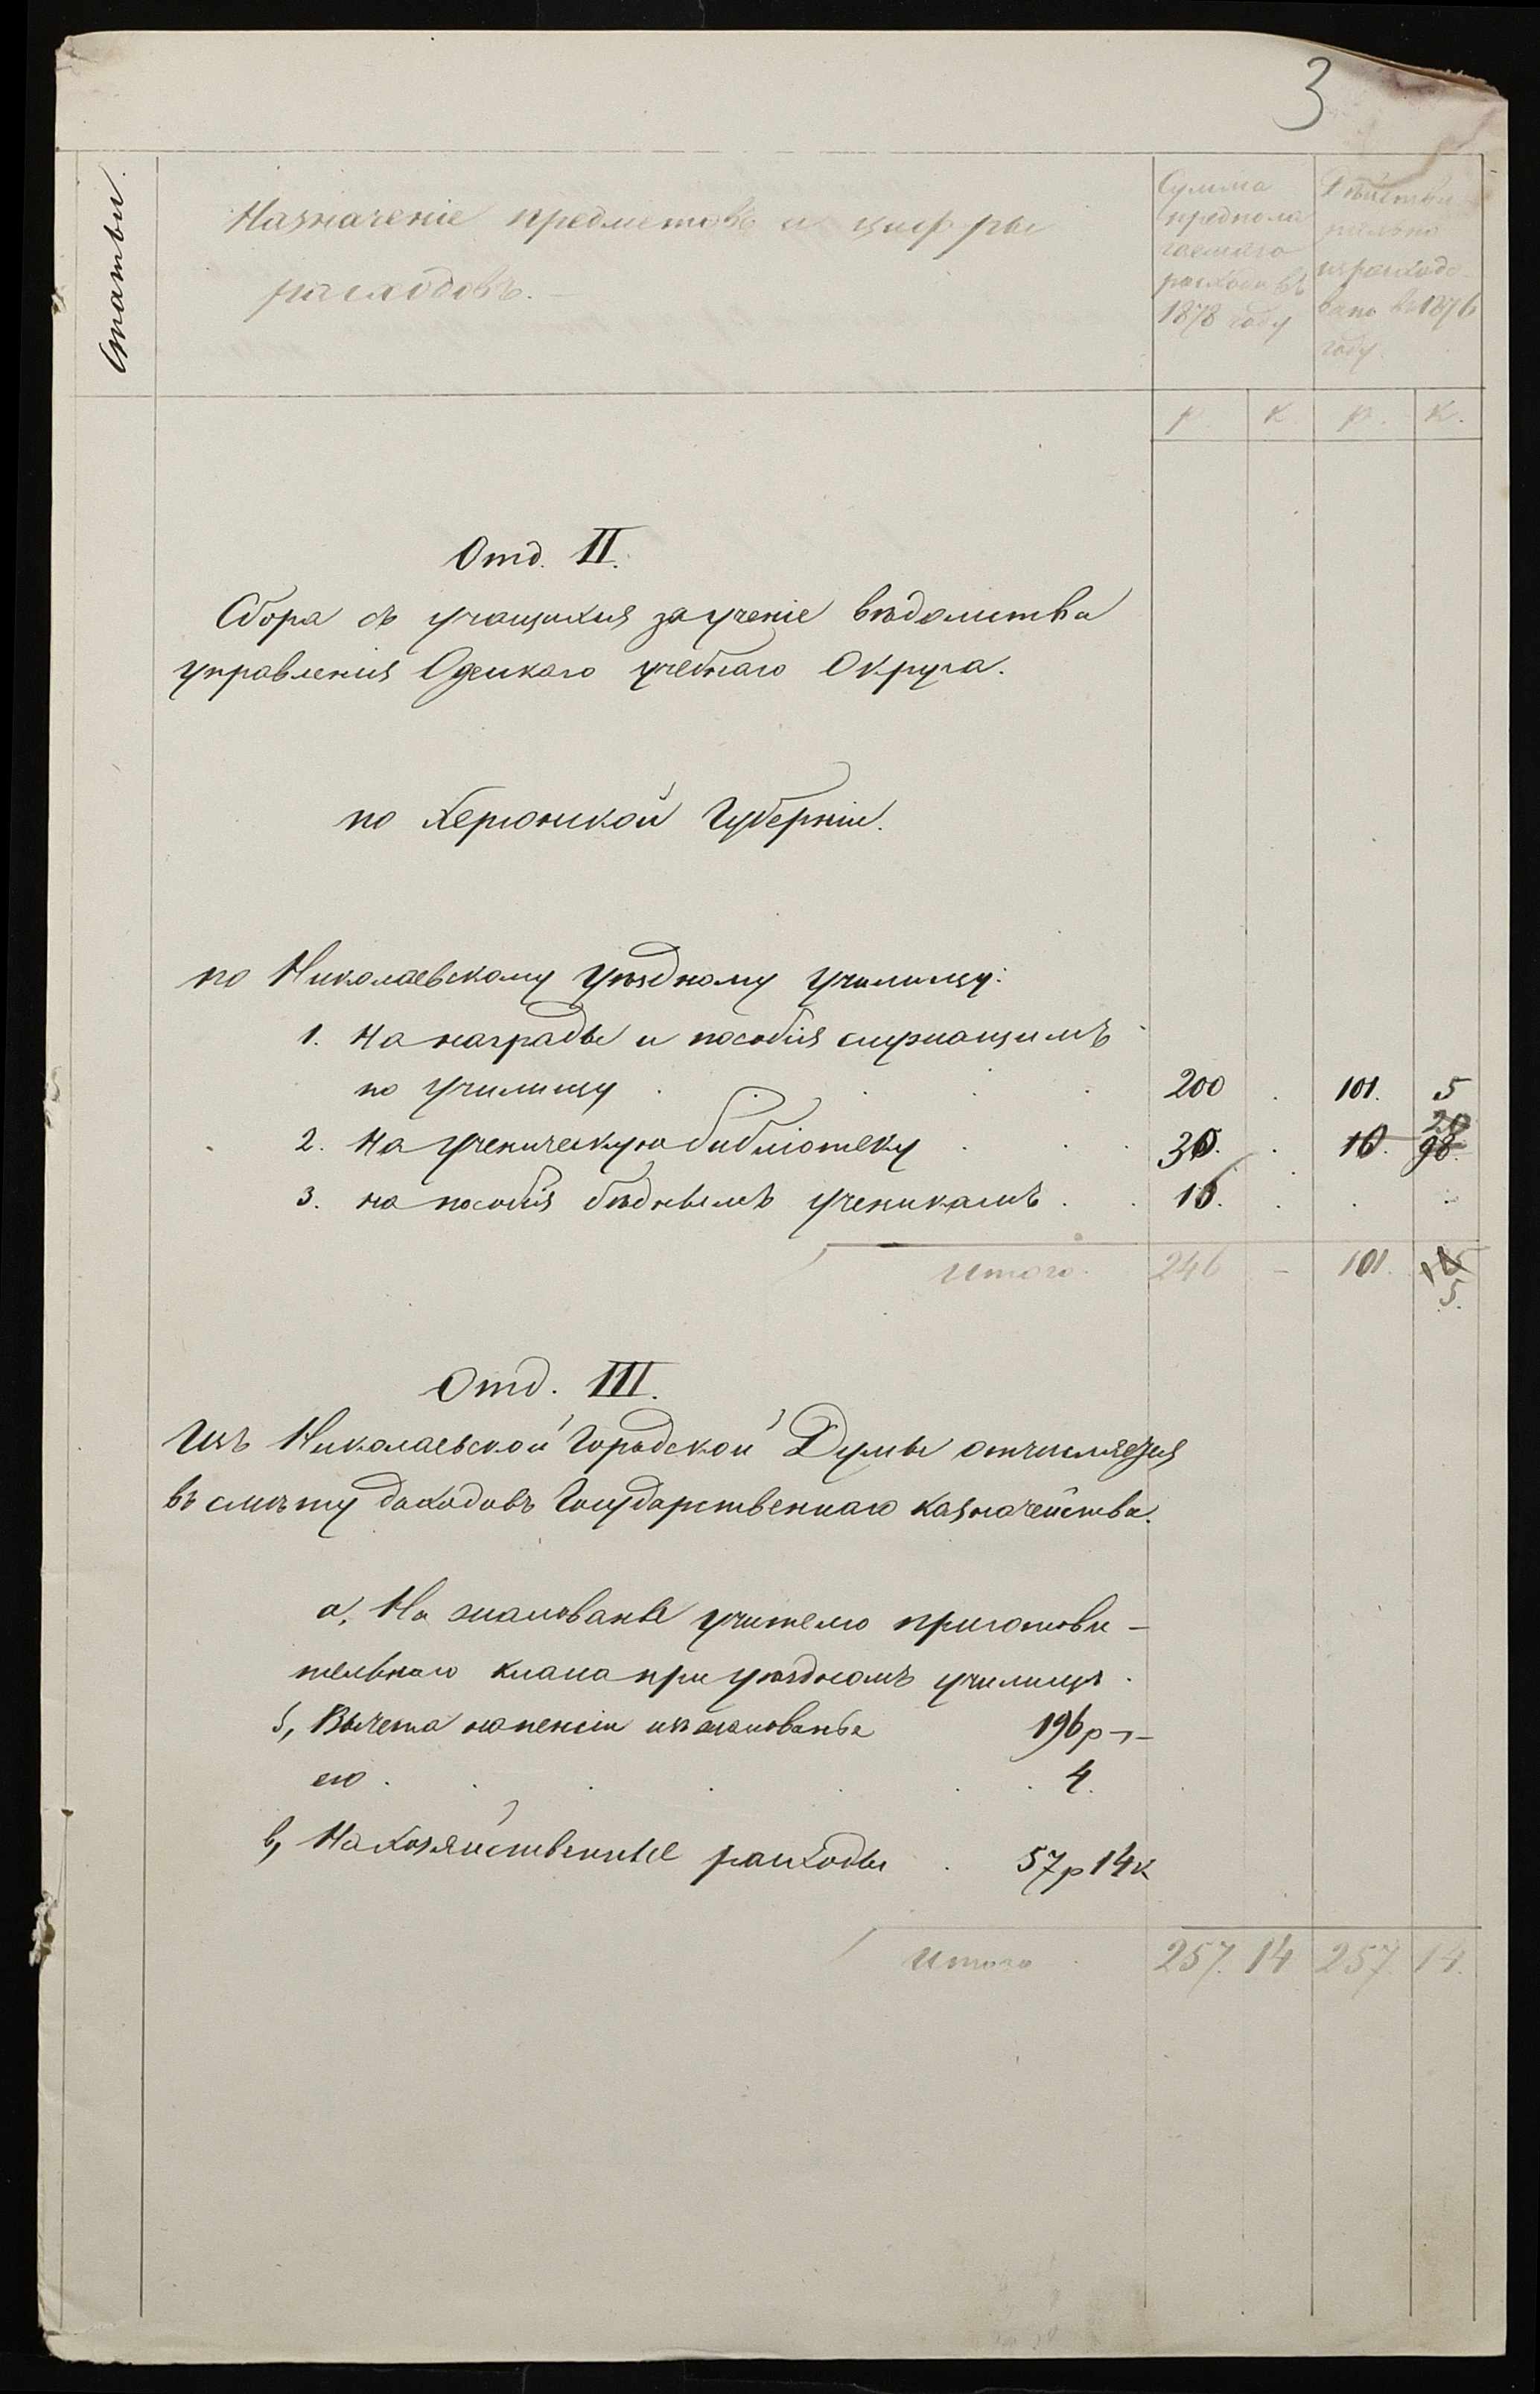 3
Статьи.
Назначеніе предметовъ и цифры
расходовъ. —
Сумма
предпола
гаемаго
расхода въ
1878 году
Действи
тельно
израсходо-
вано въ 1876
году.
р. к. р. к.
Отд. II.
Сбора съ учащихся за ученіе вѣдомства
управленія Одескаго учебнаго Округа.
по Херсонской Губерніи.
по Николаевскому Уѣздному Училищу:
1. На награды и пособія служащимъ
по училищу . . . . 200 . 101. 5
20
2. На ученическую библіотеку . . . 30. . 10. 98.
3. на пособія бѣднымъ ученикамъ . . 16. . . .
Итого. 246 — 101.
5.
Отд. III.
Изъ Николаевской Городской Думы отчисляется
въ смѣту доходовъ Государственнаго казначейства.
а, На жалованье учителю приготови-
тельнаго класса при уѣздномъ училищѣ.
б, Вычета на пенсіи изъ жалованья 196 р —
его . . . . . . 4.
в, На хозяйственные расходы . 57 р 14 к
Итого . 257. 14 257. 14.